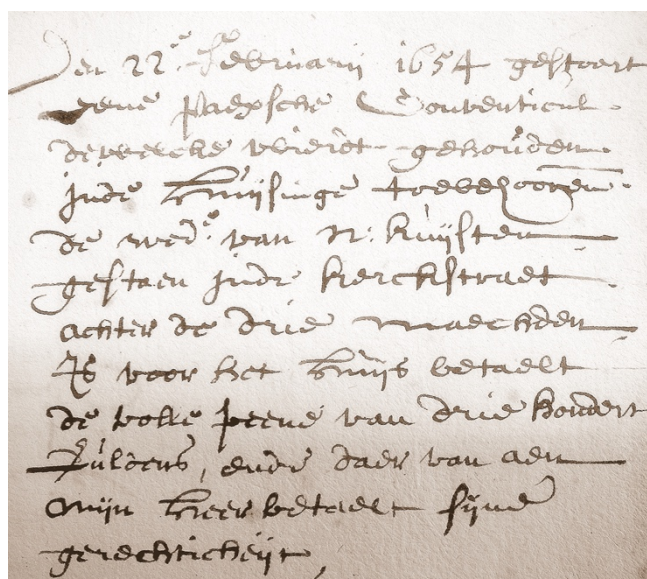 Den 22e. februarij 1654 gestoort
eene paepsche Conventicul
dewelcke wierdt gehouden
inde huijsinge toebehooren
de wede. van N: kuijsten
gestaen inde kerckstraet
achter de drie maechden
Is voor het huijs betaelt
de volle peene van drie hondert
guldens, ende daer van aen
mijn heer betaelt sijne
gerechticheijt,